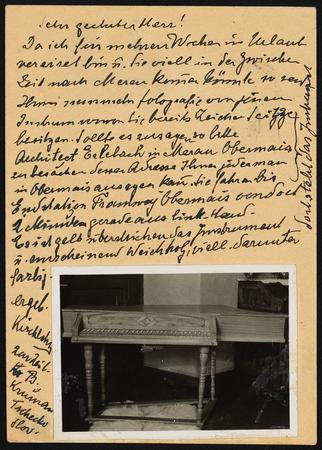 Sehr geehrter Herr!
Da ich für mehrere Wochen in Urlaub
verreist bin u. Sie viell in der Zwischen
Zeit nach Meran komen könnte so sende
Ihnen nunmehr fotografie von jenem
Instrum wovon Sie bereits Zeichen
besitzen. Sollte es zusagen so bitte
Architect in Meran Obermais
zu besuchen deren Adresse Ihnen jederman
in Obermais aussagen kan. Sie fahren bis
Endstation Tramway Obermais von dort
2 Minuten gerade aus link. Hand.
Es ist gelb überstrichen das Instrument
u. anscheinend Weichholz, viell. darunter
farbig
ergeb.
zurzeit.
B.
Krumau
Tschecho
slov.
dort steht das Instrument